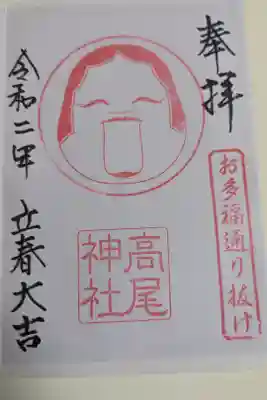 奉拝
お多福通り抜け
高尾
神社
立春大吉
令和二年